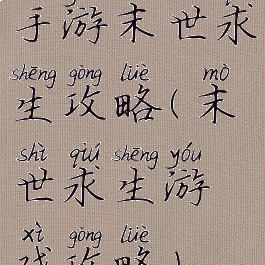 手游末世求
shēng gōng lüè mò
生攻略(末
shì qiú shēng yóu
世求生游
xì gōng lüè
戏攻略)